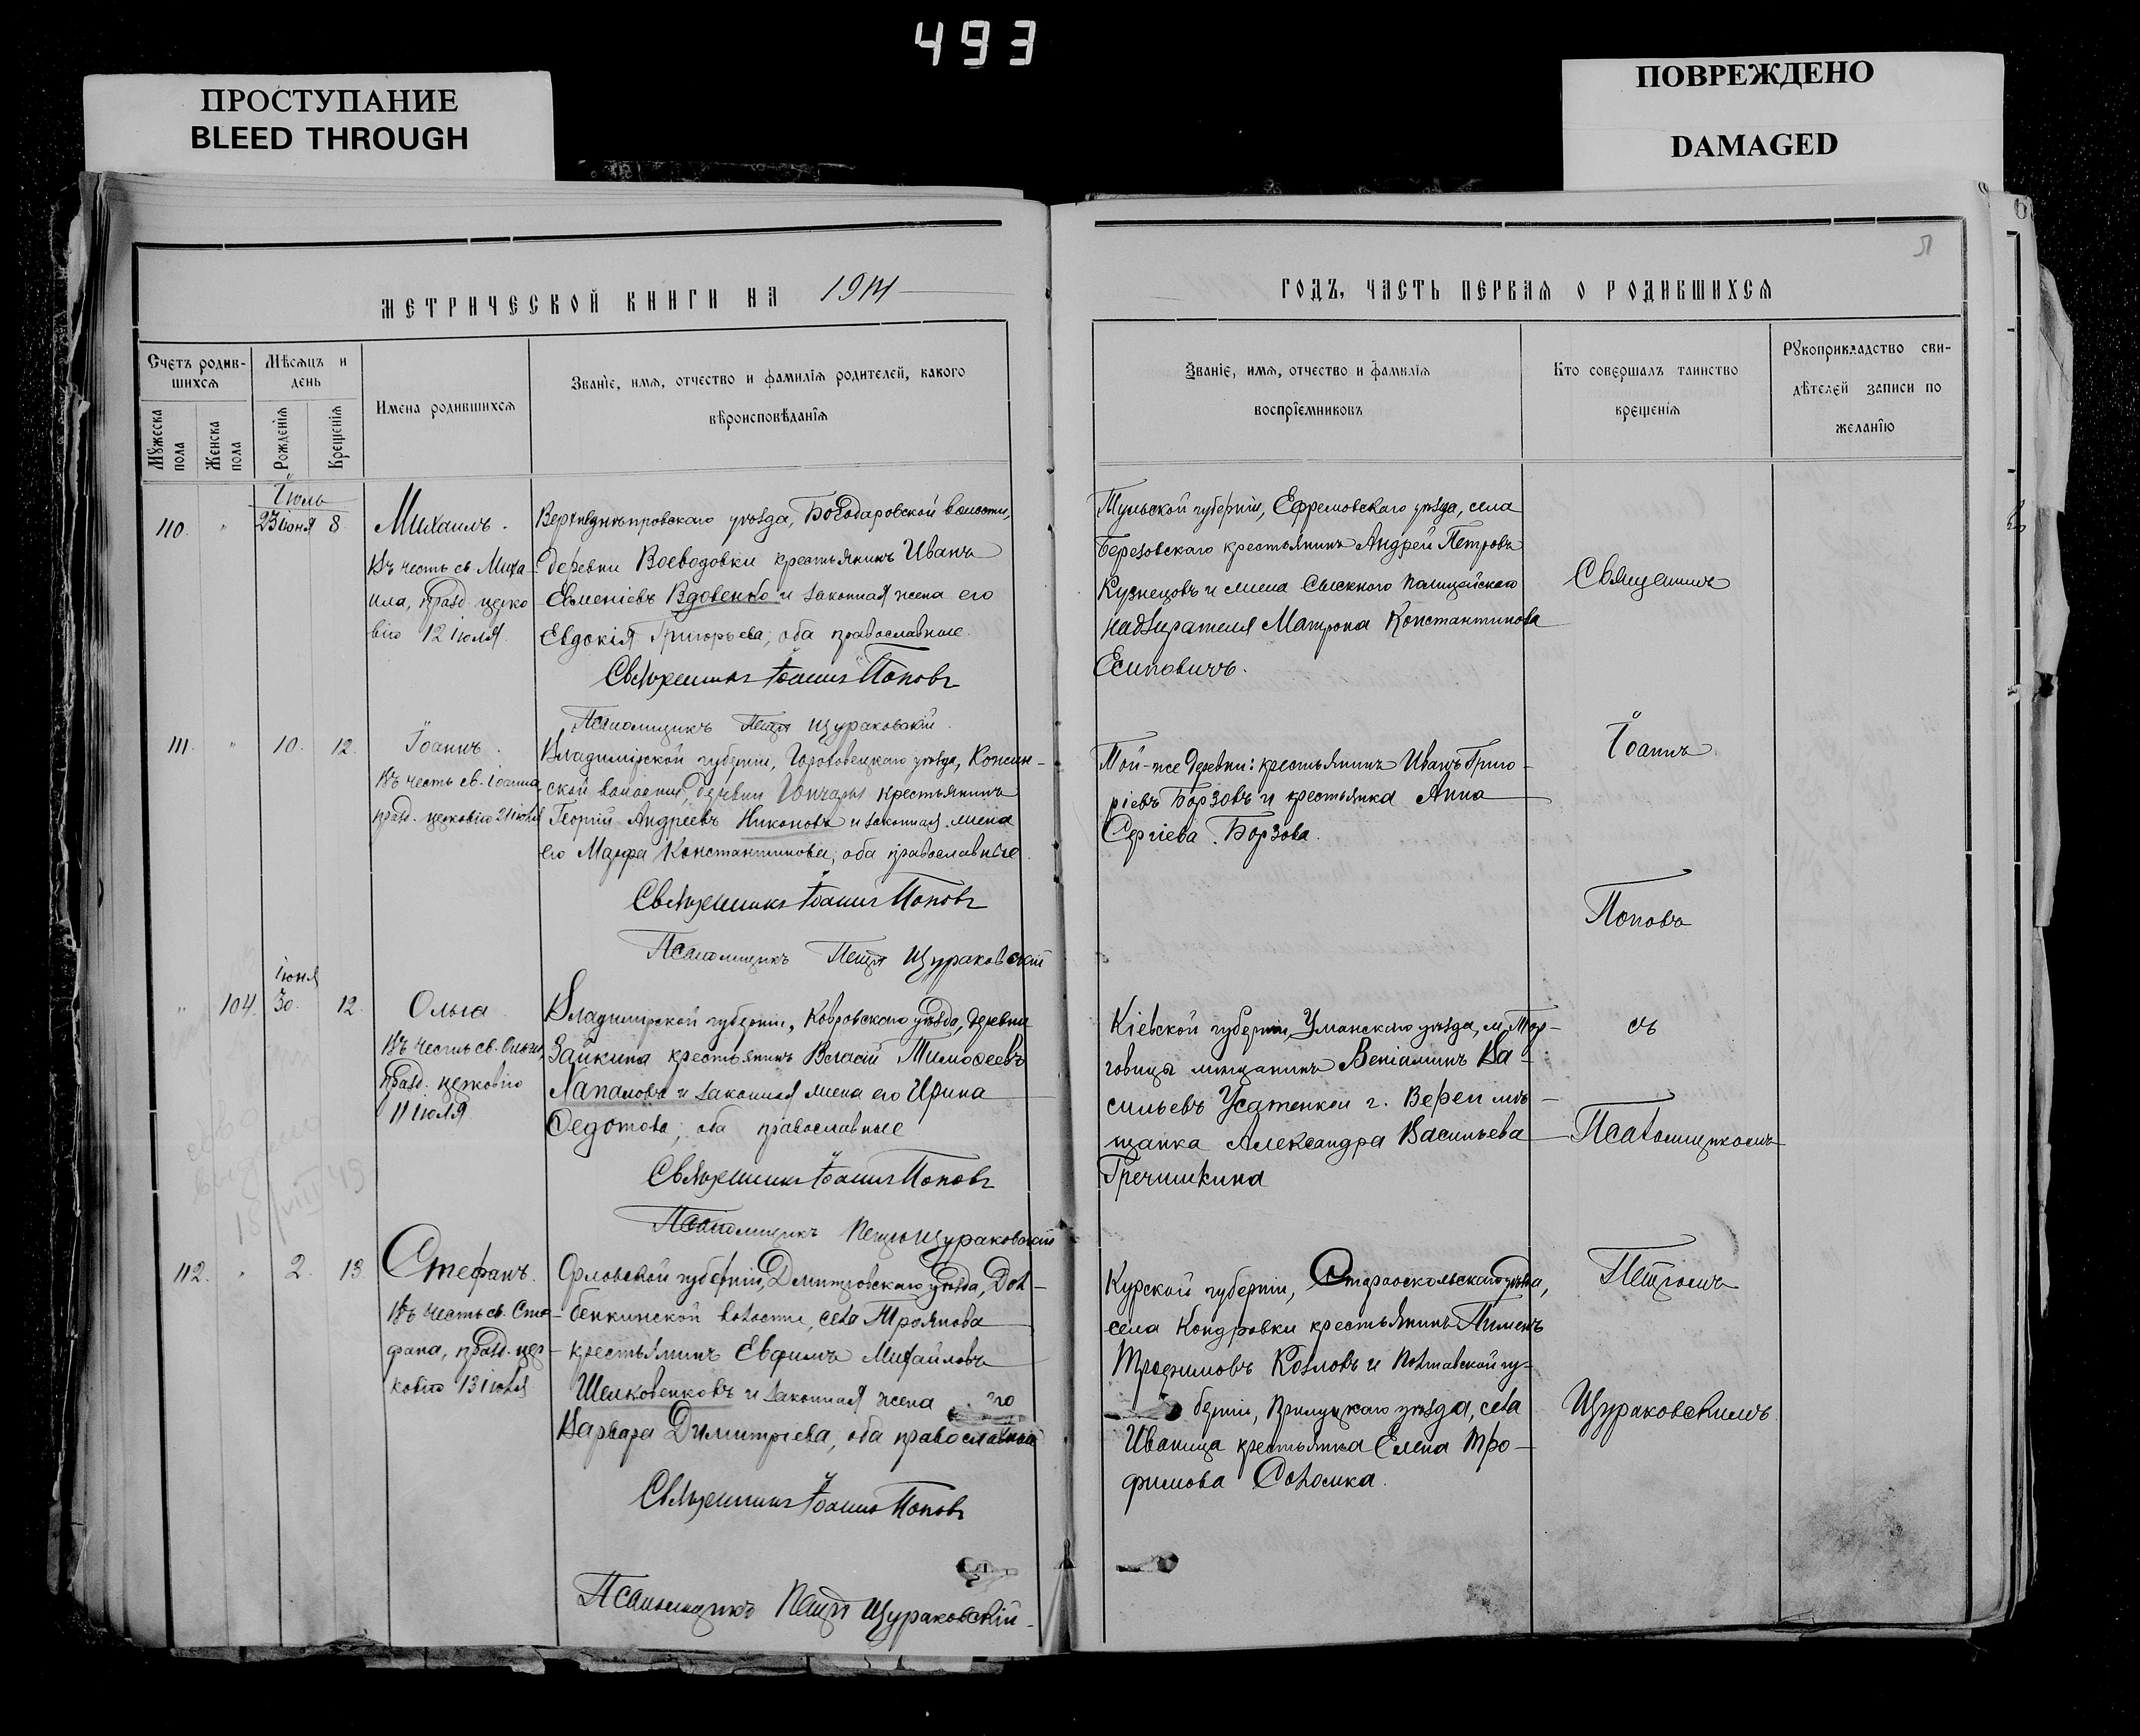 493
ПРОСТУПАНИЕ
BLEED THROUGH
ПОВРЕЖДЕНО
DAMAGED
МЕТРИЧЕСКОЙ КНИГИ НА 1911
Счетъ родив-
шихся
Мѣсяцъ и
день
Имена родившихся
Званіе, имя, отчество и фамилія родителей, какого
вѣроисповѣданія
Мужеска
пола
Женска
пола
Рожденія
Крещенія
Іюль
110. " 23 іюня 8.
Михаилъ.
Въ честь св. Миха-
ила, празд. церко
вію 12 іюля.
Верхнеднѣпровскаго уѣзда, Богодаровской волости,
деревни Воеводовки крестьянинъ Иванъ
Евменіевъ Вдовенко и законная жена его
Евдокія Григорьева; оба православные.
Священникъ Іоаннъ Поповъ
Псаломщикъ Петръ Щураковскій.
111. " 10. 12.
Іоаннъ.
Въ честь св. Іоанна,
празд. церковію
Владимірской губерніи, Гороховецкаго уѣзда, Кожин-
ской волости, деревни Гончары крестьянинъ
Георгій Андреевъ Никоновъ и законная жена
его Марфа Константинова; оба православные.
Священникъ Іоаннъ Поповъ
Псаломщикъ Петръ Щураковскій
іюня
" 104. 30. 12.
Ольга
Въ честь св. Ольги,
празд. церковію
11 іюля
Владимірской губерніи, Ковровскаго уѣзда, деревни
Зайкина крестьянинъ Власій Тимоѳеевъ
Лапаловъ и законная жена его Ирина
Ѳедотова; оба православные
Священникъ Іоаннъ Поповъ
Псаломщикъ Петръ Щураковскій
112. " 2. 13.
Стефанъ.
Въ честь св. Сте-
фана, празд. цер-
ковію 13 іюля
Орловской губерніи, Дмитровскаго уѣзда, Дол-
бенкинской волости, села Троянова
крестьянинъ Евфимъ Михайловъ
Шелковенковъ и законная жена его
Варвара Димитріева, оба православные
Священникъ Іоаннъ Поповъ
Псаломщикъ Петръ Щураковскій.
ГОДЪ, ЧАСТЬ ПЕРВАЯ О РОДИВШИХСЯ
Званіе, имя, отчество и фамилія
воспріемниковъ
Кто совершалъ таинство
крещенія
Рукоприкладство сви-
дѣтелей записи по
желанію
Тульской губерніи, Ефремовскаго уѣзда, села
Березовскаго крестьянинъ Андрей Петровъ
Кузнецовъ и жена Сыскного Полицейскаго
надзирателя Матрона Константинова
Есиповичъ.
Той-же деревни: крестьянинъ Иванъ Григо-
ріевъ Борзовъ и крестьянка Анна
Сергіева Борзова.
Кіевской губерніи, Уманскаго уѣзда, м. Тор-
говицы мѣщанинъ Веніаминъ Ва-
сильевъ Усатенко и г. Вереи мѣ-
щанка Александра Васильева
Гречишкина
Курской губерніи, Старооскольскаго уѣзда,
села Кондровки крестьянинъ Пименъ
Трофимовъ Козловъ и Полтавской гу-
берніи, Прилуцкаго уѣзда, села
Иваница крестьянка Елена Тро-
фимова Соломка.
Священникъ
Іоаннъ
Поповъ
съ
Псаломщикомъ
Петромъ
Щураковскимъ.